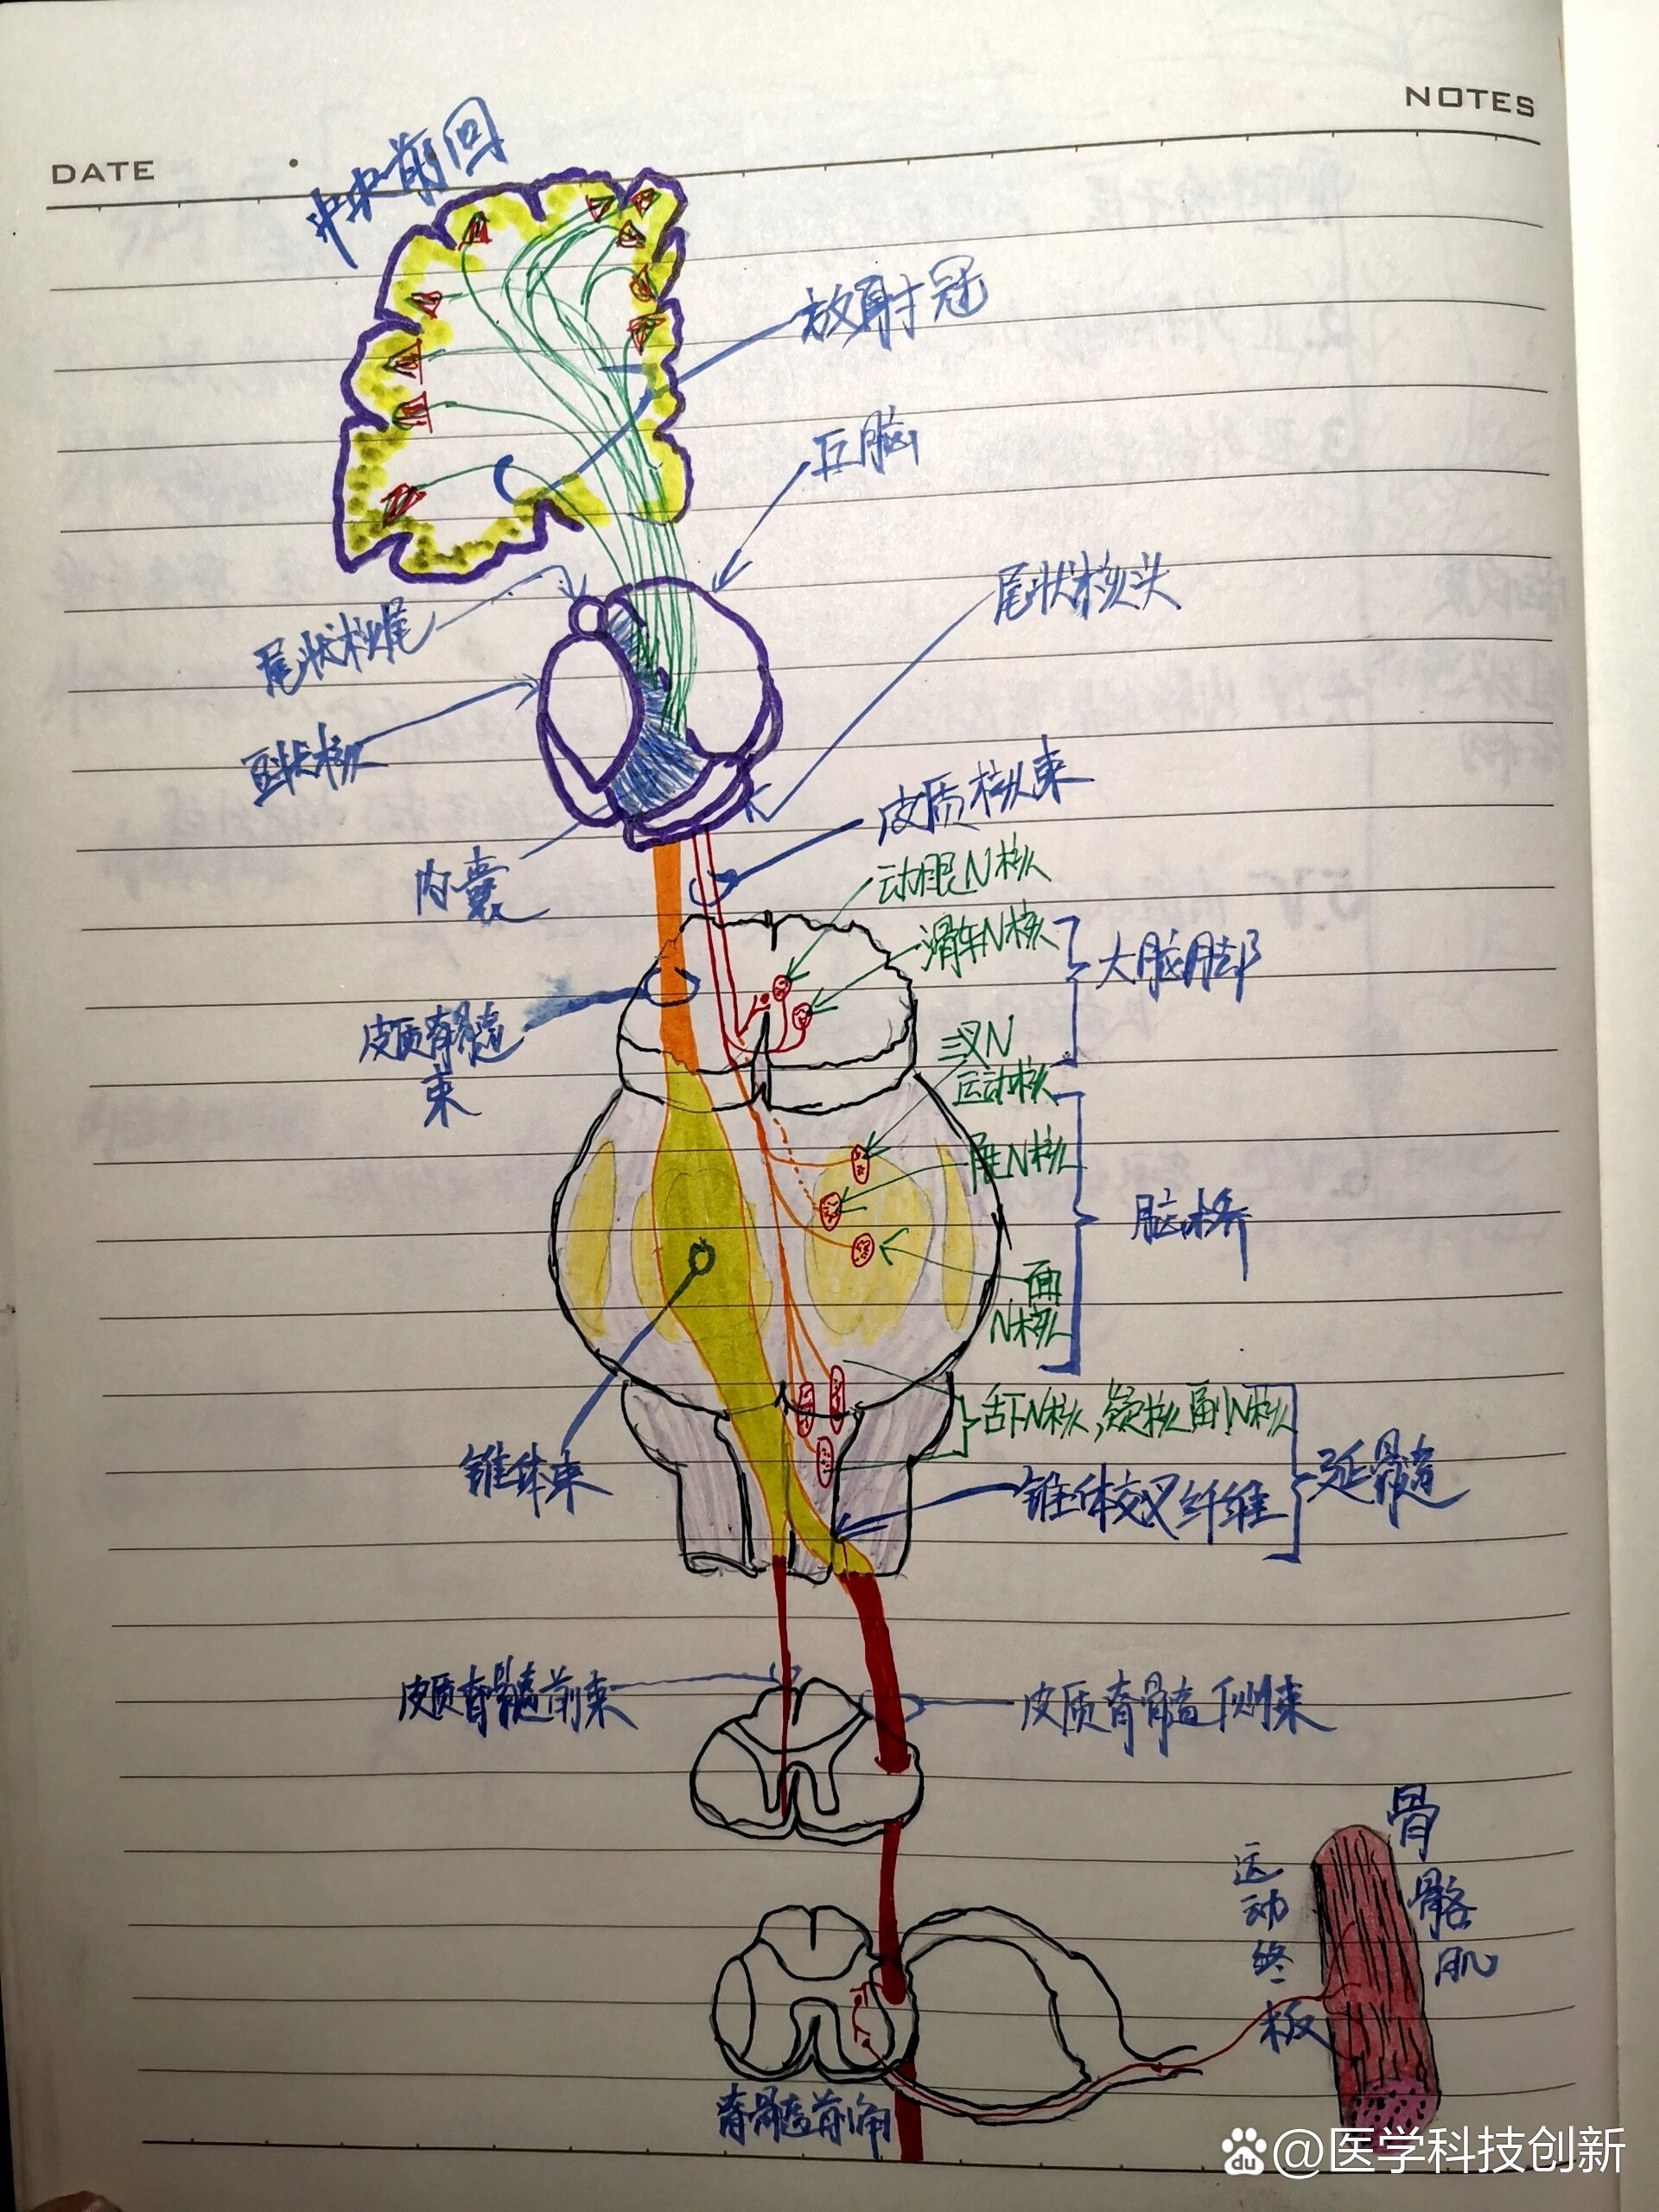 NOTES
DATE
中央前回
放射冠
丘脑
尾状核头
尾状核尾
豆状核
皮质核束
内囊
动眼N核
滑车N核
大脑脚
皮质脊髓
束
三叉N
运动核
展N核
脑桥
面
N核
舌下N核,疑核副N核
锥体束
锥体交叉纤维
延髓
皮质脊髓前束
皮质脊髓侧束
骨骼肌
运动终板
脊髓前角
du @医学科技创新